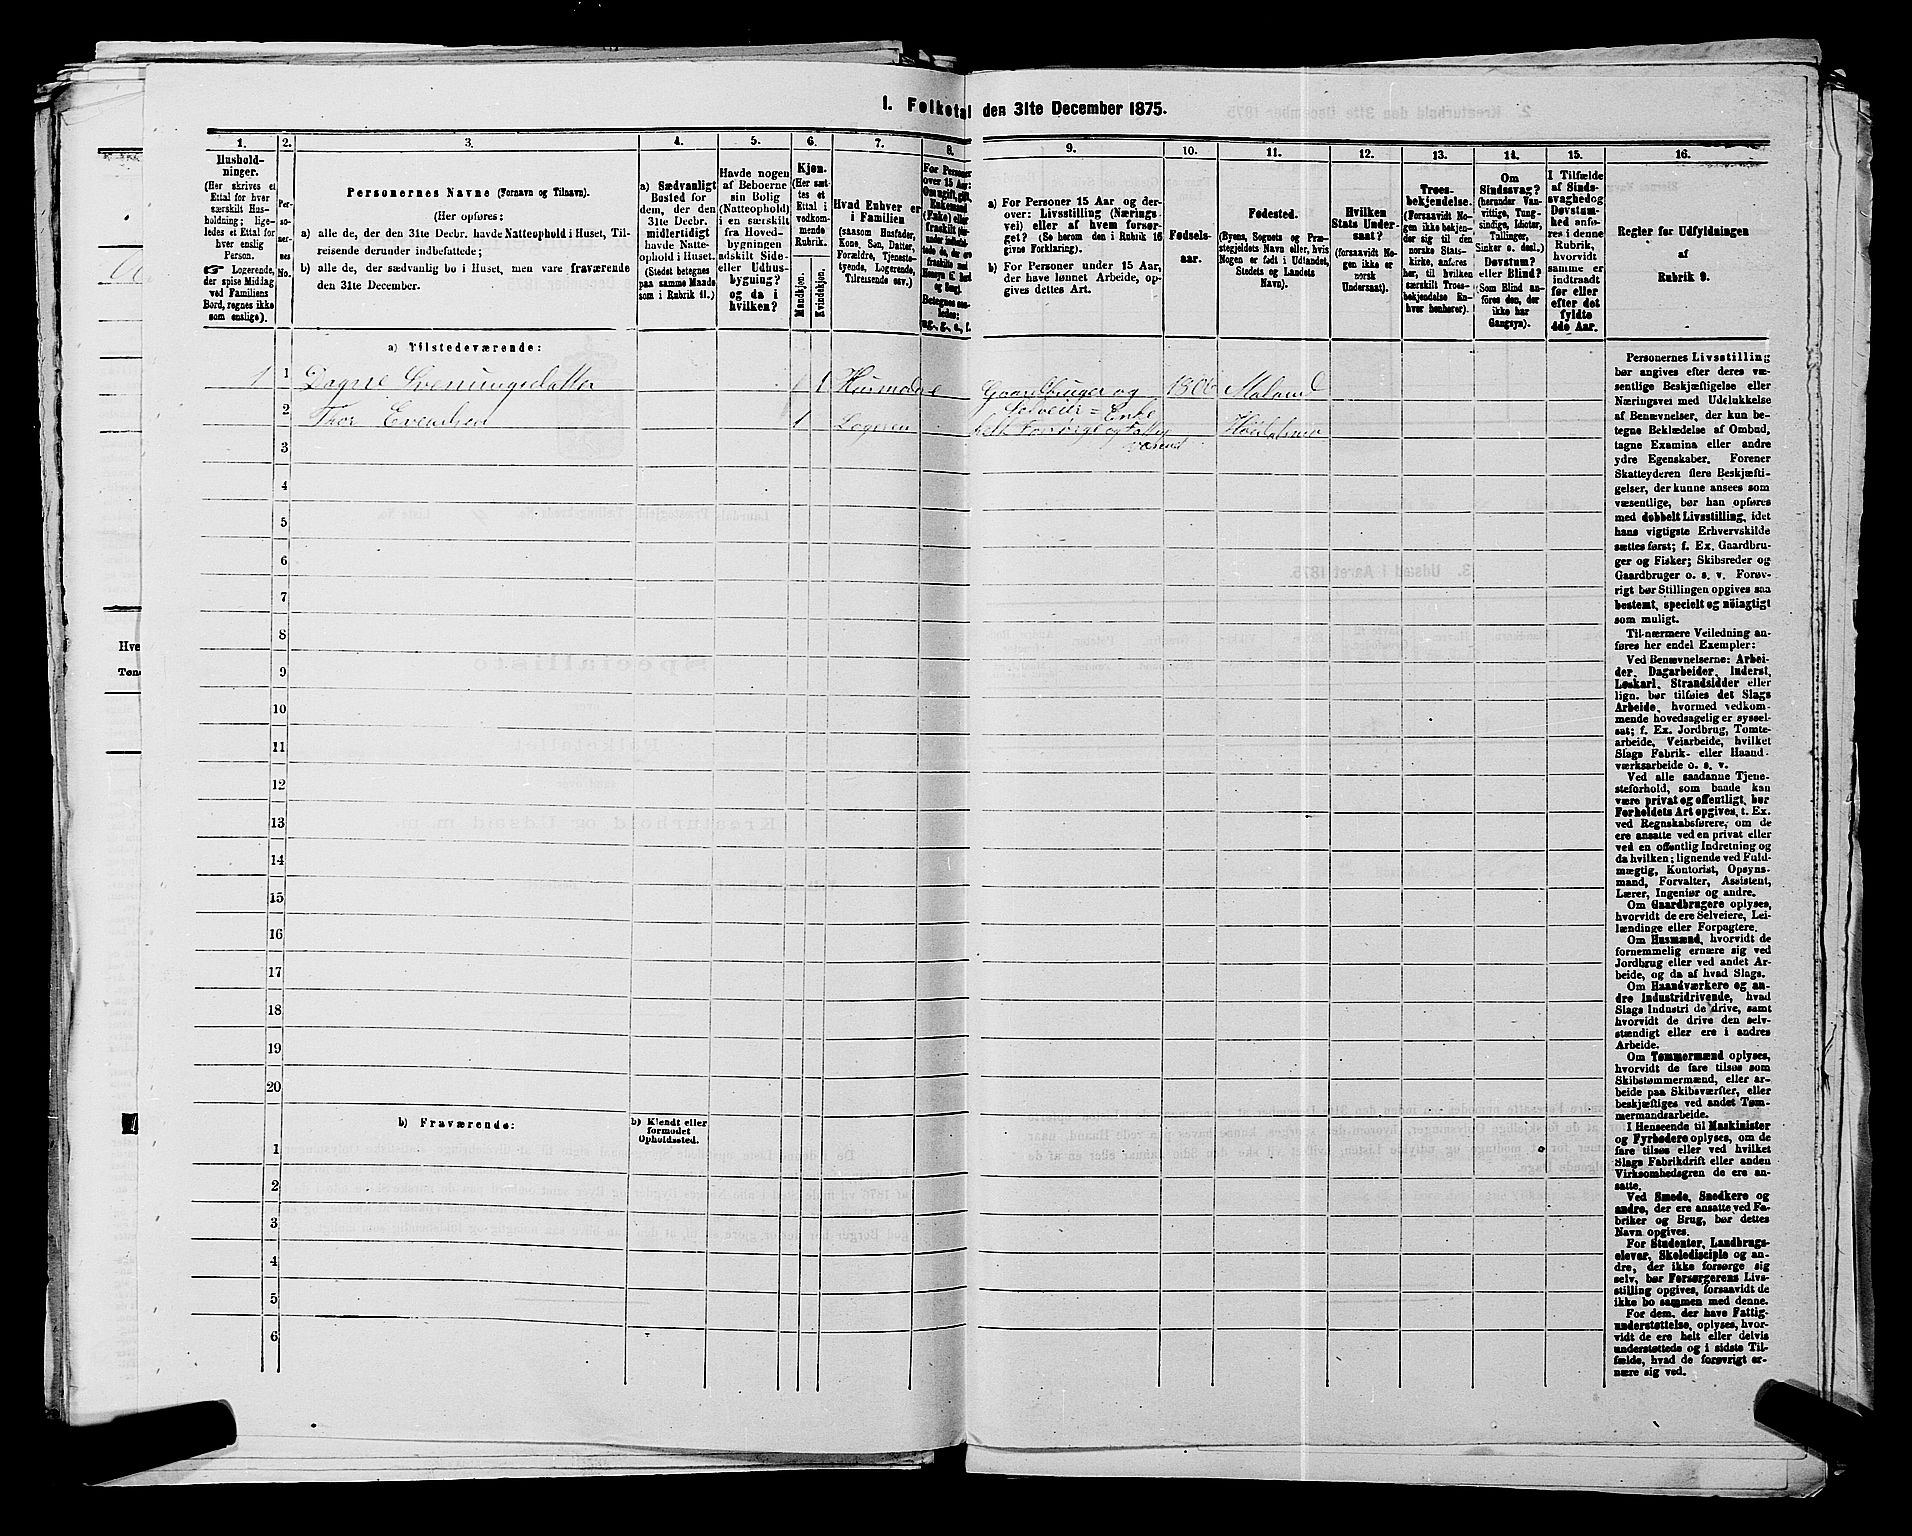 1. Folketal den 31te December 1875.
1.
Hushold-
ninger.
(Her skrives et
Ettal for hver
særskilt Hus-
holdning; lige-
ledes et Ettal for
hver enslig
Person.
☛ Logerende,
der spise Middag
ved Familiens
Bord, regnes ikke
som enslige).
2.
Per-
so-
ner-
nes
No.
3.
Personernes Navne (Fornavn og Tilnavn).
(Her opføres:
a) alle de, der den 31te Decbr. havde Natteophold i Huset, Til-
reisende derunder indbefattede;
b) alle de, der sædvanlig bo i Huset, men vare fraværende
den 31te December.
4.
a) Sædvanligt
Bosted for
dem, der den
31te Decbr.
midlertidigt
havde Natte-
ophold i Huset.
(Stedet betegnes
paa samme Maade
som i Rubrik 11.)
5.
Havde nogen
af Beboerne
sin Bolig
(Natteophold)
i en særskilt
fra Hoved-
bygningen
adskilt Side-
eller Udhus-
bygning?
og da i
hvilken?
6.
Kjøn.
(Her sæt-
tes et
Ettal i
vedkom-
mende
Rubrik.
Mandkjøn.
Kvindekjøn.
7.
Hvad Enhver er
i Familien
(saasom Husfader,
Kone, Søn, Datter,
Forældre, Tjeneste-
tyende, Logerende,
Tilreisende osv.)
8.
For Personer
over 15 Aar:
9.
a) For Personer 15 Aar og der-
over: Livsstilling (Nærings-
vei) eller af hvem forsør-
get? (Se herom den i Rubrik 16
givne Forklaring).
b) For Personer under 15 Aar,
der have lønnet Arbeide, op-
gives dettes Art.
10.
Fødsels-
aar.
11.
Fødested.
(Byens, Sognets og Præ-
stegjeldets Navn eller, hvis
Nogen er født i Udlandet,
Stedets og Landets
Navn).
12.
Hvilken
Stats Under-
saat?
(forsaavidt No-
gen ikke er
norsk
Undersaat).
13.
Troes-
bekjendelse.
(Forsaavidt No-
gen ikke bekjen-
der sig til den
norske Stats-
kirke, anføres
her, til hvilken
særskilt Troes-
bekjendelse En-
hver henhører).
14.
Om
Sindssvag?
(herunder Van-
vittige, Tung-
sindige, Idioter,
Tullinger,
Sinker o. desl.)
Døvstum?
eller Blind?
(Som Blind an-
føres den, der
ikke har
Gangsyn).
15.
I Tilfælde
af Sinds-
svaghed og
Døvstum-
hed anfø-
res i denne
Rubrik,
hvorvidt
samme er
indtraadt
før eller
efter det
fyldte
4de Aar.
16.
Regler for Udfyldningen
af
Rubrik 9.
a) Tilstedeværende:
1 1 Dagne Sveinungsdatter 1 Husmoder Gaardbruger og Selveier = Enke
2 Thor Evendsen 1 Logeren
3
4
5
6
7
8
9
10
11
12
13
14
15
16
17
18
19
20
b) Fraværende:
b) Kjendt eller
formodet
Opholdssted.
1
2
3
4
5
6
Personernes Livsstilling
bør angives efter deres væ-
sentlige Beskjæftigelse eller
Næringsvei med Udelukkelse
af Benævnelser, der kun be-
tegne Beklædelse af Ombud,
tagne Examina eller andre
ydre Egenskaber. Forener
Skatteyderen flere Beskjæfti-
gelser, der kunne ansees som
væsentlige, bør han opføres
med dobbelt Livsstilling, idet
hans vigtigste Erhvervskilde
sættes først; f. Ex. Gaardbru-
ger og Fisker; Skibsreder og
Gaardbruger o. s. v. Forøv-
rigt bør Stillingen opgives saa
bestemt, specielt og nøiagtigt
som muligt.
Til nærmere Veiledning an-
føres her endel Exempler:
Ved Benævnelserne: Arbei-
der, Dagarbeider, Inderst,
Løskarl, Strandsidder eller
lign. bør tilføies det Slags
Arbeide, hvormed vedkom-
mende hovedsagelig er syssel-
sat; f. Ex. Jordbrug, Tomte-
arbeide, Veiarbeide, hvilket
Slags Fabrik- eller Haand-
værksarbeide o. s. v.
Ved alle saadanne Tjene-
steforhold, som baade kan
være privat og offentligt, bør
Forholdets Art opgives, t. Ex.
ved Regnskabsførere, om de
ere ansatte ved en privat eller
ved en offentlig Indretning og
da hvilken; lignende ved Fuld-
mægtig, Kontorist, Opsyns-
mand, Forvalter, Assistent,
Lærer, Ingeniør og andre.
Om Gaardbrugere oplyses,
hvorvidt de ere Selveiere, Lei-
lændinge eller Forpagtere.
Om Husmænd, hvorvidt de
fornemmelig ernære sig ved
Jordbrug eller ved andet Ar-
beide, og da af hvad Slags.
Om Haandværkere og an-
dre Industridrivende, hvad
Slags Industri de drive, samt
hvorvidt de drive den selv-
stændigt eller ere i andres
Arbeide.
Om Tømmermænd oplyses,
hvorvidt de fare tilsøs som
Skibstømmermænd, eller ar-
beide paa Skibsværfter, eller
beskjæftiges ved andet Tøm-
mermandsarbeide.
I Henseende til Maskinister
og Fyrbødere oplyses, om de
fare tilsøs eller ved hvilket
Slags Fabrikdrift eller anden
Virksomhedsgren de ere an-
satte.
Ved Smede, Snedkere og
andre, der ere ansatte ved Fa-
briker og Brug, bør dettes
Navn opgives.
For Studenter, Landbrugs-
elever, Skoledisciple og an-
dre, der ikke forsørge sig
selv, bør Forsørgerens Livs-
stilling opgives, forsaavidt de
ikke bo sammen med denne.
For dem, der have Fattig-
understøttelse, oplyses, hvor-
vidt de ere helt eller delvis
understøttede og i sidste Til-
fælde, hvad de forøvrigt er-
nære sig ved.
Hve
Tøn